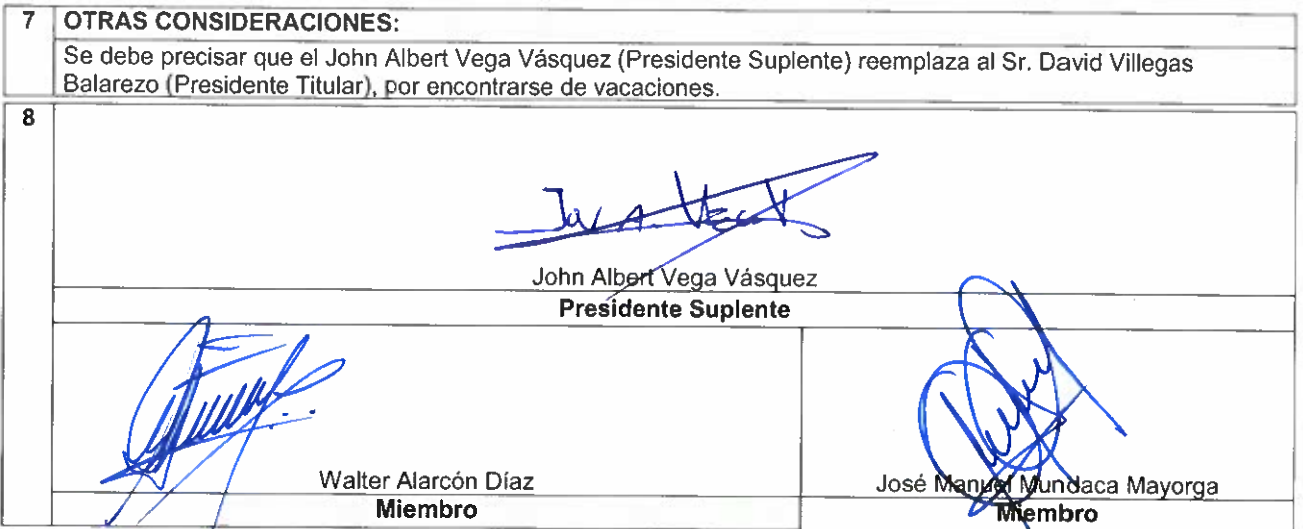 7 OTRAS CONSIDERACIONES:
Se debe precisar que el John Albert Vega Vásquez (Presidente Suplente) reemplaza al Sr. David Villegas
Balarezo (Presidente Titular), por encontrarse de vacaciones.
8
John Albert Vega Vásquez
Presidente Suplente
Walter Alarcón Díaz
Miembro
José Manuel Mundaca Mayorga
Miembro